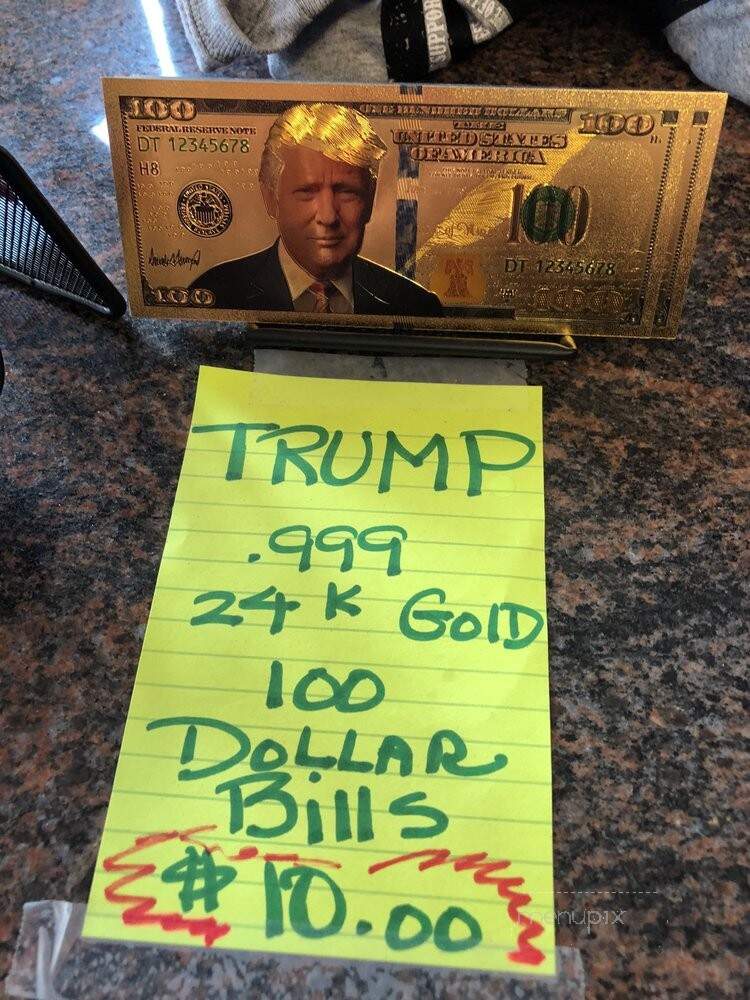 100 ONE HUNDRED DOLLARS 100
FEDERAL RESERVE NOTE
THE
UNITED STATES
OF AMERICA
DT 12345678
H8
100
DT 12345678
100
TRUMP
.999
24 K GOlD
100
DOLLAR
Bills
$10.00
menupix